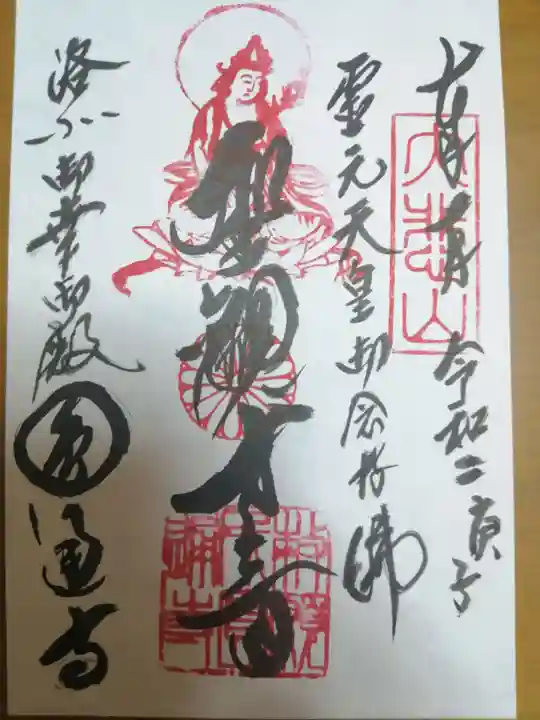 令和二庚子
霊元天皇御念持佛
聖観世音
洛北御幸御殿
圓通寺
大悲山